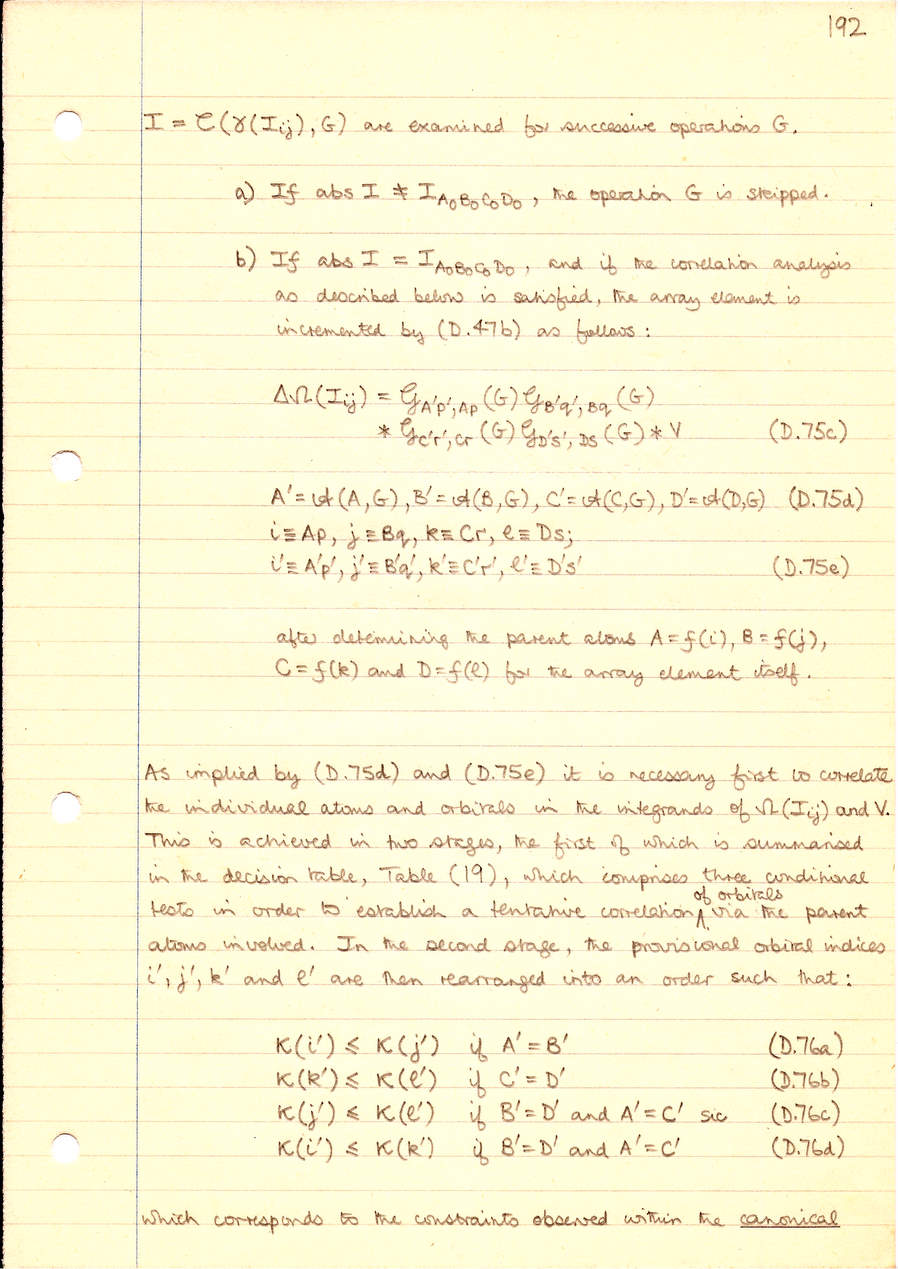 192
I = 𝒞(γ(Iij), G) are examined for successive operations G.
a) If abs I ≠ I A₀B₀C₀D₀, the operation G is skipped.
b) If abs I = I A₀B₀C₀D₀, and if the correlation analysis
as described below is satisfied, the array element is
incremented by (D.47b) as follows:
ΔΩ(Iij) = 𝒢A'p',Ap (G) 𝒢B'q',Bq (G)
* 𝒢C'r',Cr (G) 𝒢D's',Ds (G) * V (D.75c)
A' = 𝒜(A,G), B' = 𝒜(B,G), C' = 𝒜(C,G), D' = 𝒜(D,G) (D.75d)
i ≡ Ap, j ≡ Bq, k ≡ Cr, ℓ ≡ Ds;
i' ≡ A'p', j' ≡ B'q', k' ≡ C'r', ℓ' ≡ D's' (D.75e)
after determining the parent atoms A = f(i), B = f(j),
C = f(k) and D = f(ℓ) for the array element itself.
As implied by (D.75d) and (D.75e) it is necessary first to correlate
the individual atoms and orbitals in the integrands of Ω(Iij) and V.
This is achieved in two stages, the first of which is summarised
in the decision table, Table (19), which comprises three conditional
tests in order to establish a tentative correlation of orbitals via the parent
atoms involved. In the second stage, the provisional orbital indices
i', j', k' and ℓ' are then rearranged into an order such that:
K(i') ≤ K(j') if A' = B' (D.76a)
K(k') ≤ K(ℓ') if C' = D' (D.76b)
K(j') ≤ K(ℓ') if B' = D' and A' = C' sic (D.76c)
K(i') ≤ K(k') if B' = D' and A' = C' (D.76d)
which corresponds to the constraints observed within the canonical